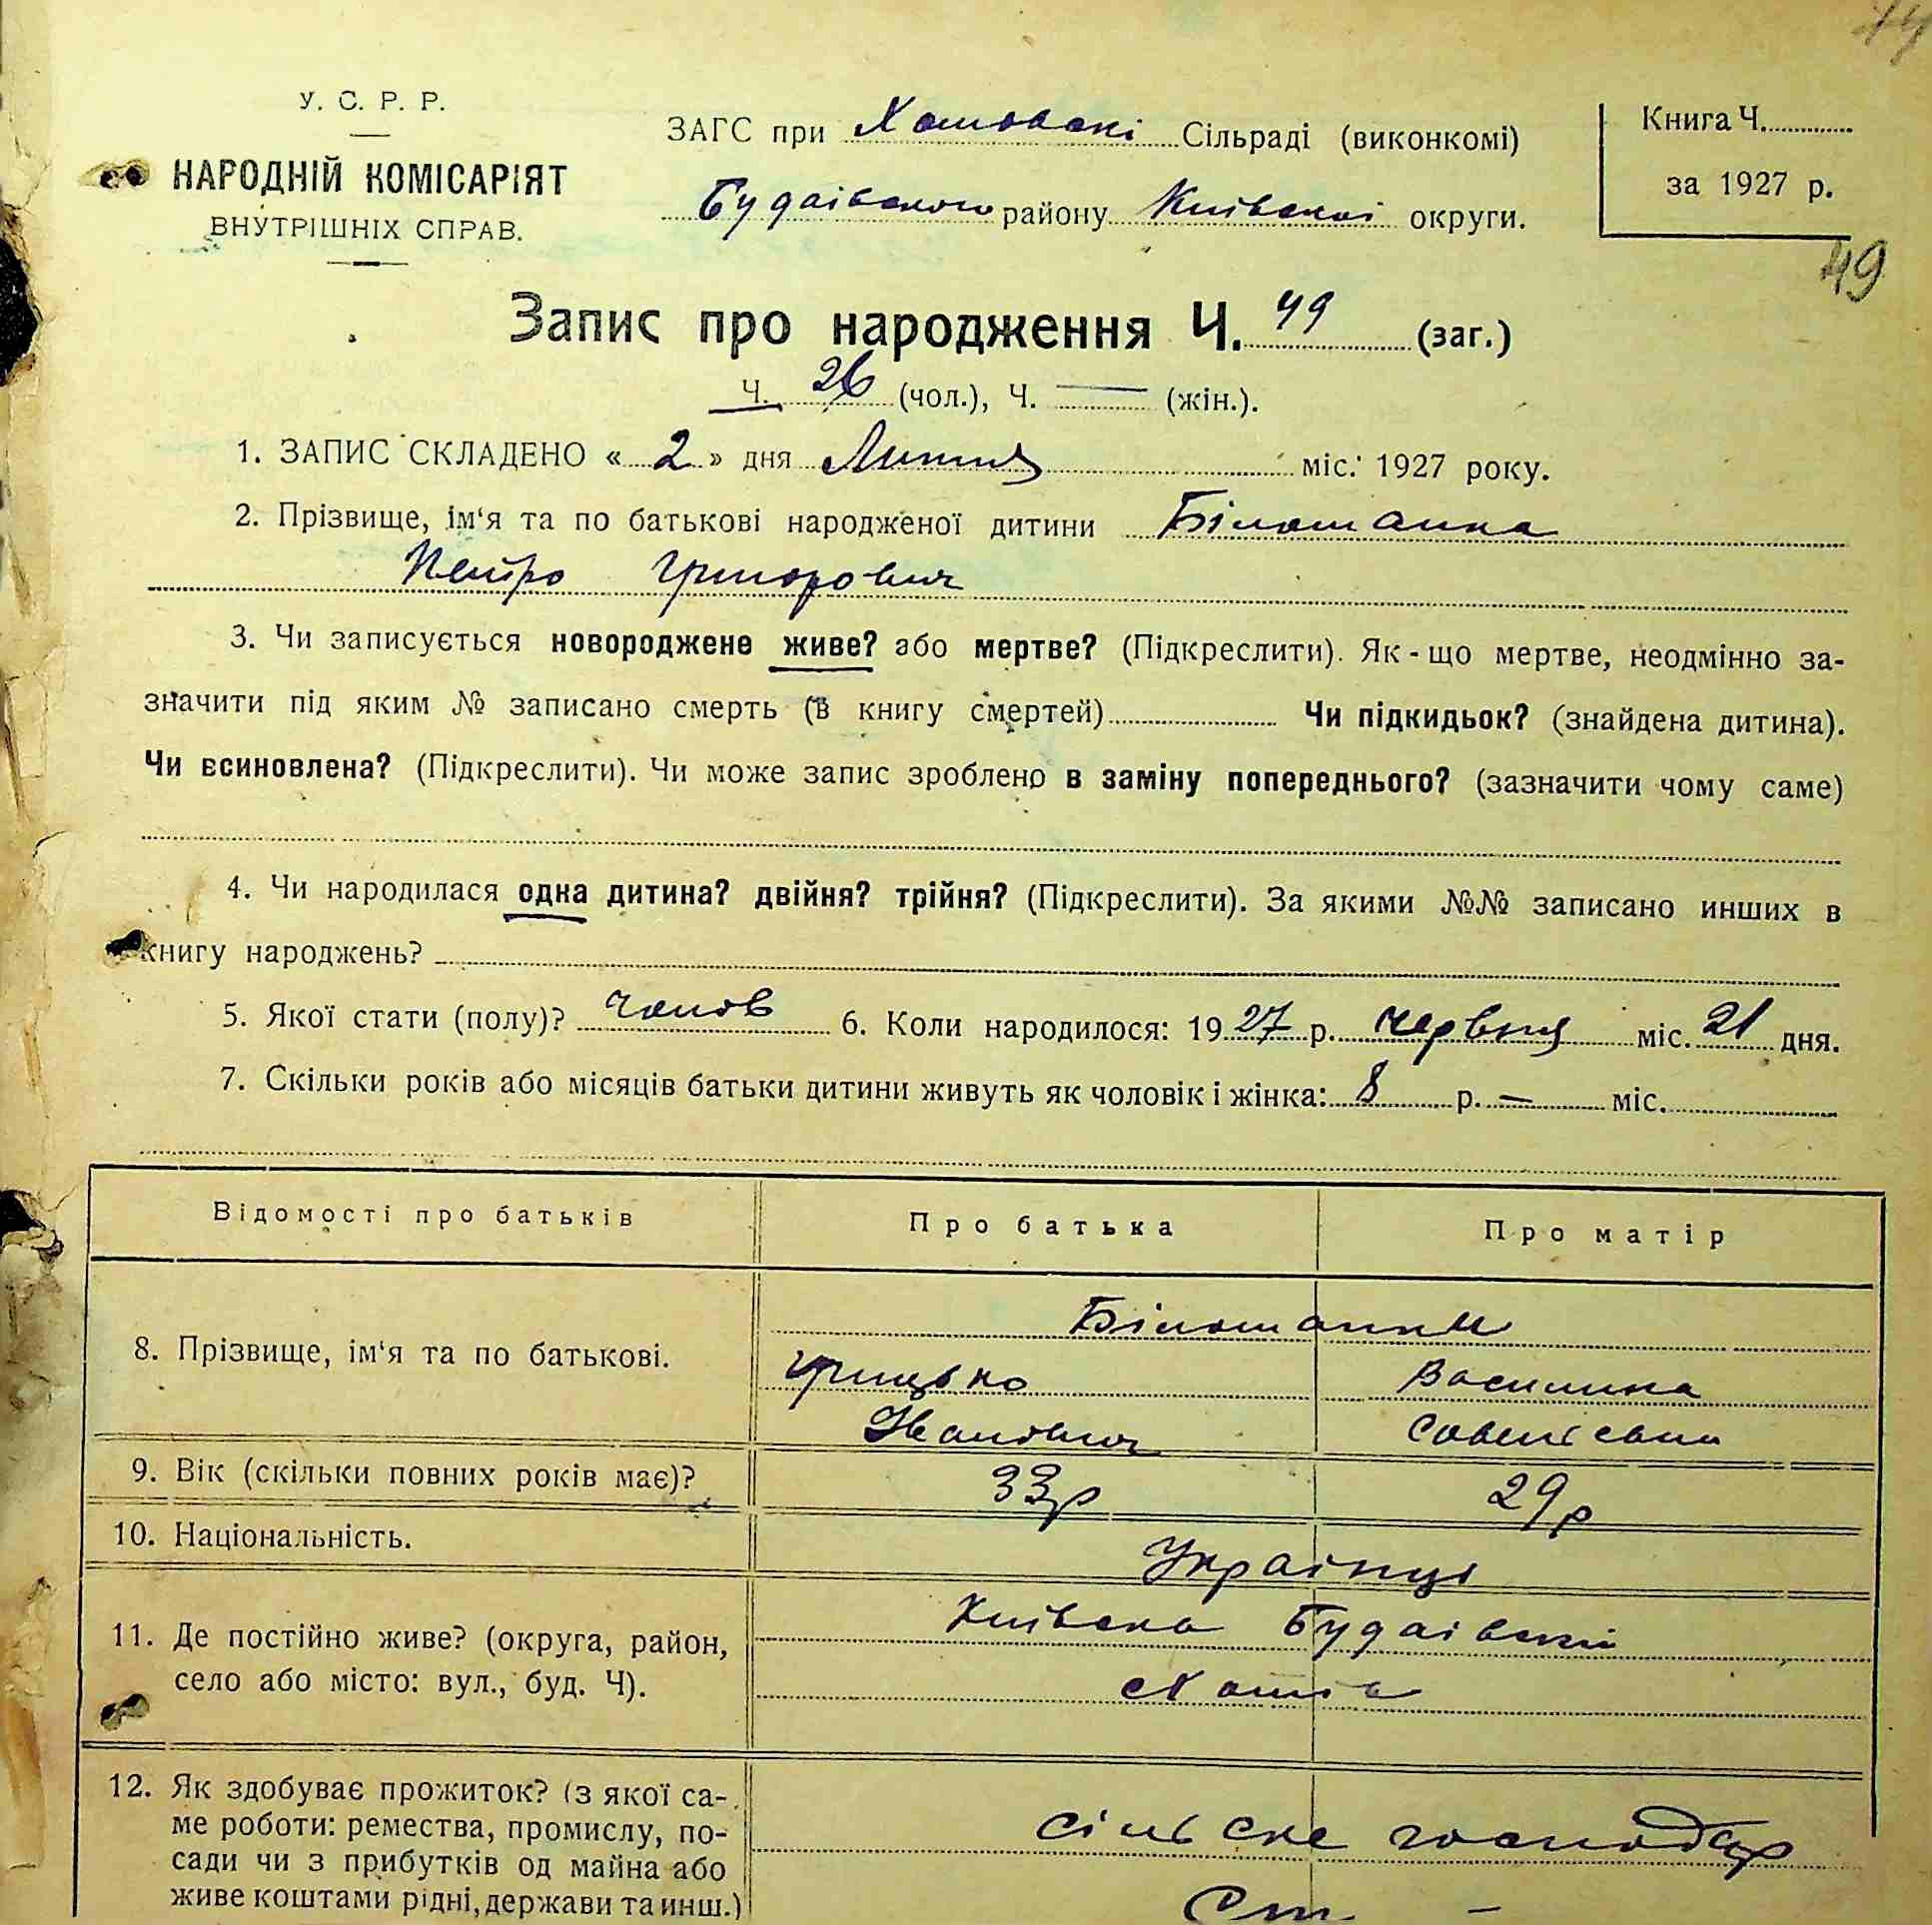 У. С. Р. Р.
НАРОДНІЙ КОМІСАРІЯТ
ВНУТРІШНІХ СПРАВ.
ЗАГС при Хотовскі Сільраді (виконкомі)
Будаівського району Київскої округи.
Книга Ч.
за 1927 р.
49
Запис про народження Ч. 49 (заг.)
Ч. 26 (чол.), Ч. — (жін.).
1. ЗАПИС СКЛАДЕНО « 2 » дня Липня міс. 1927 року.
2. Прізвище, ім'я та по батькові народженої дитини Білошапка
Петро Григорович
3. Чи записується новороджене живе? або мертве? (Підкреслити). Як-що мертве, неодмінно за-
значити під яким № записано смерть (в книгу смертей) Чи підкидьок? (знайдена дитина).
Чи всиновлена? (Підкреслити). Чи може запис зроблено в заміну попереднього? (зазначити чому саме)
4. Чи народилася одна дитина? двійня? трійня? (Підкреслити). За якими №№ записано инших в
книгу народжень?
5. Якої стати (полу)? чолов 6. Коли народилося: 1927 р. червня міс. 21 дня.
7. Скільки років або місяців батьки дитини живуть як чоловік і жінка: 8 р. — міс.
Відомості про батьків Про батька Про матір
Білошапки
8. Прізвище, ім'я та по батькові. Грицько Василина
Іванович Савеліевна
9. Вік (скільки повних років має)? 33р 29р
10. Національність. Украінці
11. Де постійно живе? (округа, район, Київска Будаівский
село або місто: вул., буд. Ч). с Хотів
12. Як здобуває прожиток? (з якої са-
ме роботи: ремества, промислу, по- сільске господар
сади чи з прибутків од майна або
живе коштами рідні, держави та инш.) ст –